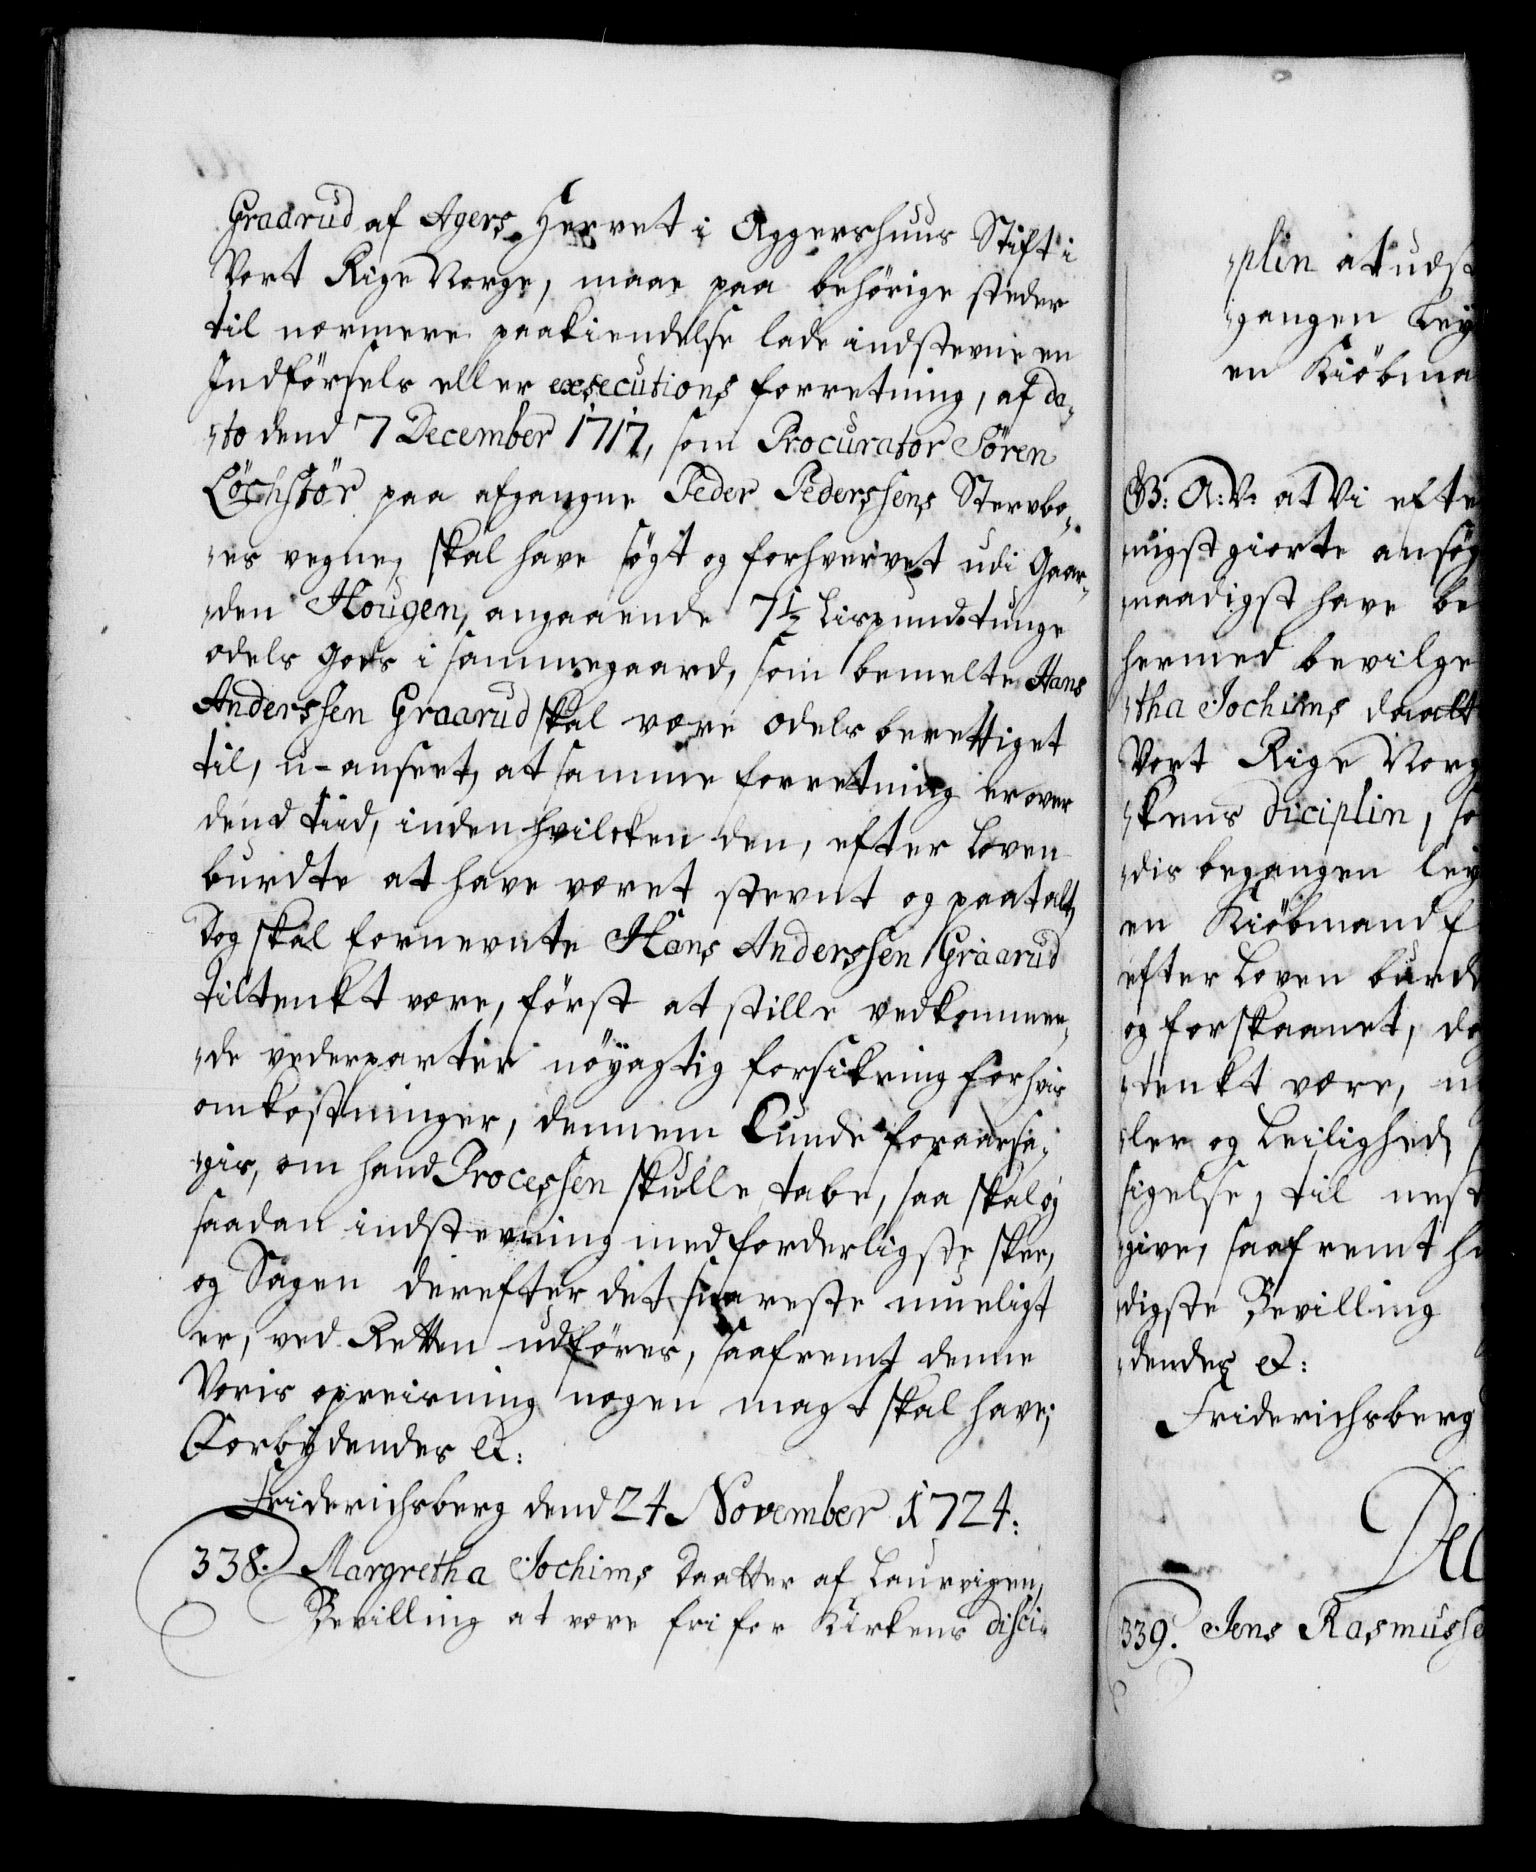 Graarud af Agers Herret i Aggershuus Stift i
Vort Rige Norge, maae paa behörige steder
til nermere paakiendelse lade indstevne en
Indförsels eller executions forretning, af da„
„to dend 7 December 1717, som Procurator Sören
Löchstör paa afgangne Peder Pederssens Stervbo„
„es vegne, skal have sögt og forhvervet udi Gaar„
„den Hougen, angaaende 7½ Lispundtunge
odels Gods i sammegaard, som bemelte Hans
Anderssen Graarud skal være odels berettiget
til, u-anseet, at samme forretning er over
dend tiid, inden hvilcken den, efter Loven
burdte at have været stevnt og paatalt,
Dog skal fornevnte Hans Anderssen Graarud
tiltenkt være, först at stille vedkommen„
„de vederparter nöyagtig forsikring for hvis
omkostninger, dennem kunde foraarsa„
„gis, om hand Processen skulle tabe, saa skal og
saadan indstevning med forderligste skee,
og Sagen derefter det snareste mueligt
er, ved Retten udföres, saafremt denne
Voris opreisning nogen magt skal have;
Forbydendes &:
Friderichsberg dend 24 November 1724:
338. Margretha Jochims Daatter af Laurvigen,
Bevilling at være fri for Kirkens disci„
„plin at udst
„gangen Ley
en Kiöbma
G: A: V: at Vi efte
„nigst giorte ansög
„naadigst have be
hermed bevilge
„tha Jochims daatt
Vort Rige Norg
„kens diciplin, so
„dis begangen ley
en Kiöbmand f
efter Loven burd
og forskaanet, do
„tenkt være, u
„ler og Leilighed
sigelse, til nest
„give, saafremt h
digste Bevilling
„dendes &:
Friderichsberg
De
339. Jens Rasmusse